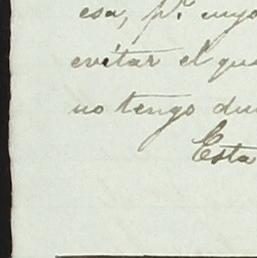 esa, p.r cuyo
evitar el que
no tengo du
Esta